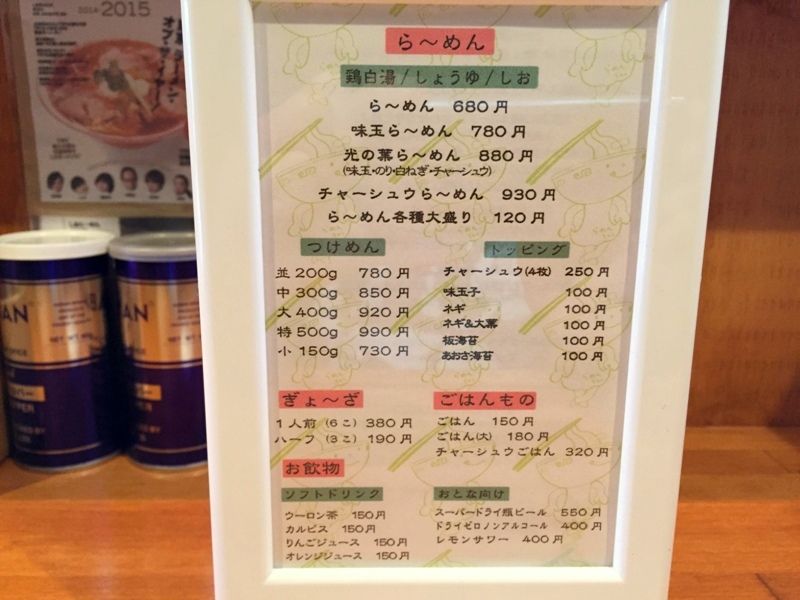 2014 2015
ら〜めん
鶏白湯/しょうゆ/しお
ら〜めん 680円
味玉ら〜めん 780円
光の葉ら〜めん 880円
(味玉・のり・白ねぎ・チャーシュウ)
チャーシュウら〜めん 930円
ら〜めん各種大盛り 120円
つけめん
並 200g 780円
中 300g 850円
大 400g 920円
特 500g 990円
小 150g 730円
トッピング
チャーシュウ(4枚) 250円
味玉子 100円
ネギ 100円
ネギ&大葉 100円
板海苔 100円
あおさ海苔 100円
ぎょ〜ざ
1人前(6こ) 380円
ハーフ(3こ) 190円
ごはんもの
ごはん 150円
ごはん(大) 180円
チャーシュウごはん 320円
お飲物
ソフトドリンク
ウーロン茶 150円
カルピス 150円
りんごジュース 150円
オレンジジュース 150円
おとな向け
スーパードライ瓶ビール 550円
ドライゼロノンアルコール 400円
レモンサワー 400円